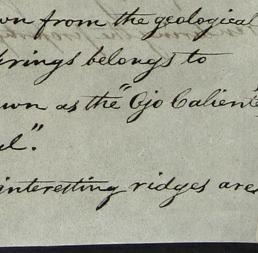 own from the geological
rings belongs to
own as the "Ojo Caliente
interesting ridges are